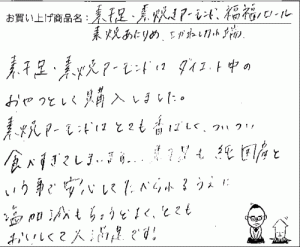 お買い上げ商品名：素干足・素焼きアーモンド、福福ロール
素焼あたりめ、
素干足・素焼アーモンドはダイエット中の
おやつとして購入しました。
素焼アーモンドはとても香ばしく、ついつい
食べすぎてしまいます。も純国産と
いう事で安心してたべられるうえに
塩加減もちょうどよく、とても
おいしくて大満足です!